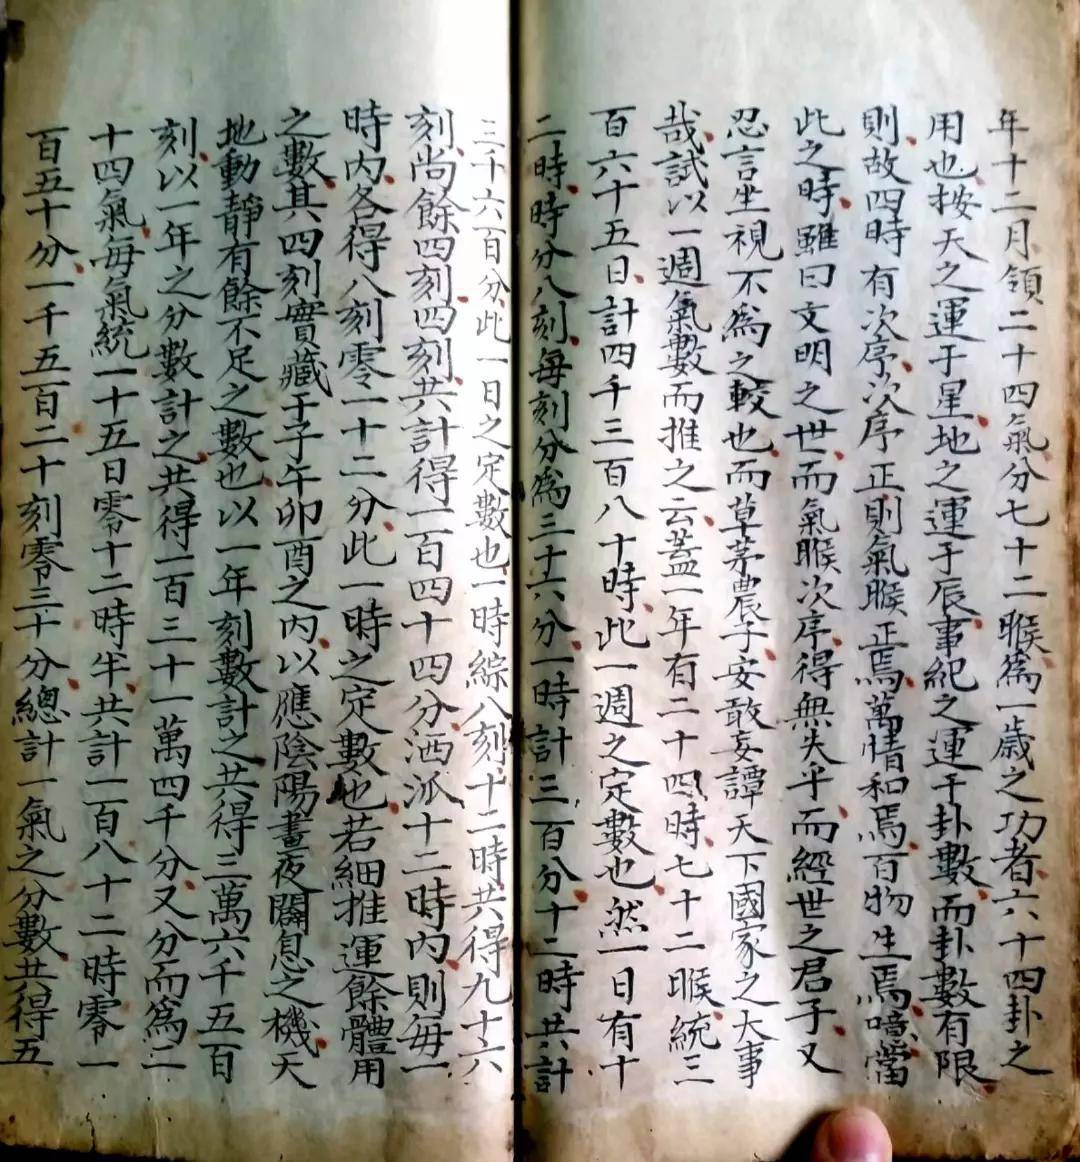 年十二月領二十四氣分七十二𠉀為一歲之功者六十四卦之
用也按天之運于星地之運于辰事紀之運于卦數而卦數有限
則故四時有次序次序正則氣𠉀正焉萬情和焉百物生焉噫當
此之時雖曰文明之世而氣𠉀次序得無失乎而經世之君子又
忍言坐視不為之較也而草茅農子安敢妄譚天下國家之大事
哉試以一週氣數而推之云蓋一年有二十四時七十二𠉀統三
百六十五日計四千三百八十時此一週之定數也然一日有十
二時時分八刻每刻分為三十六分一時計三百分十二時共計
三千六百分此一日之定數也一時綜八刻十二時共得九十六
刻尚餘四刻四刻共計得一百四十四分洒派十二時內則每一
時內各得八刻零一十二分此一時之定數也若細推運餘體用
之數其四刻實藏于子午卯酉之內以應陰陽晝夜闔息之機天
地動靜有餘不足之數也以一年刻數計之共得三萬六千五百
刻以一年之分數計之共得一百三十一萬四千分又分而為二
十四氣每氣統一十五日零十二時半共計一百八十二時零一
百五十分一千五百二十刻零三十分總計一氣之分數共得五